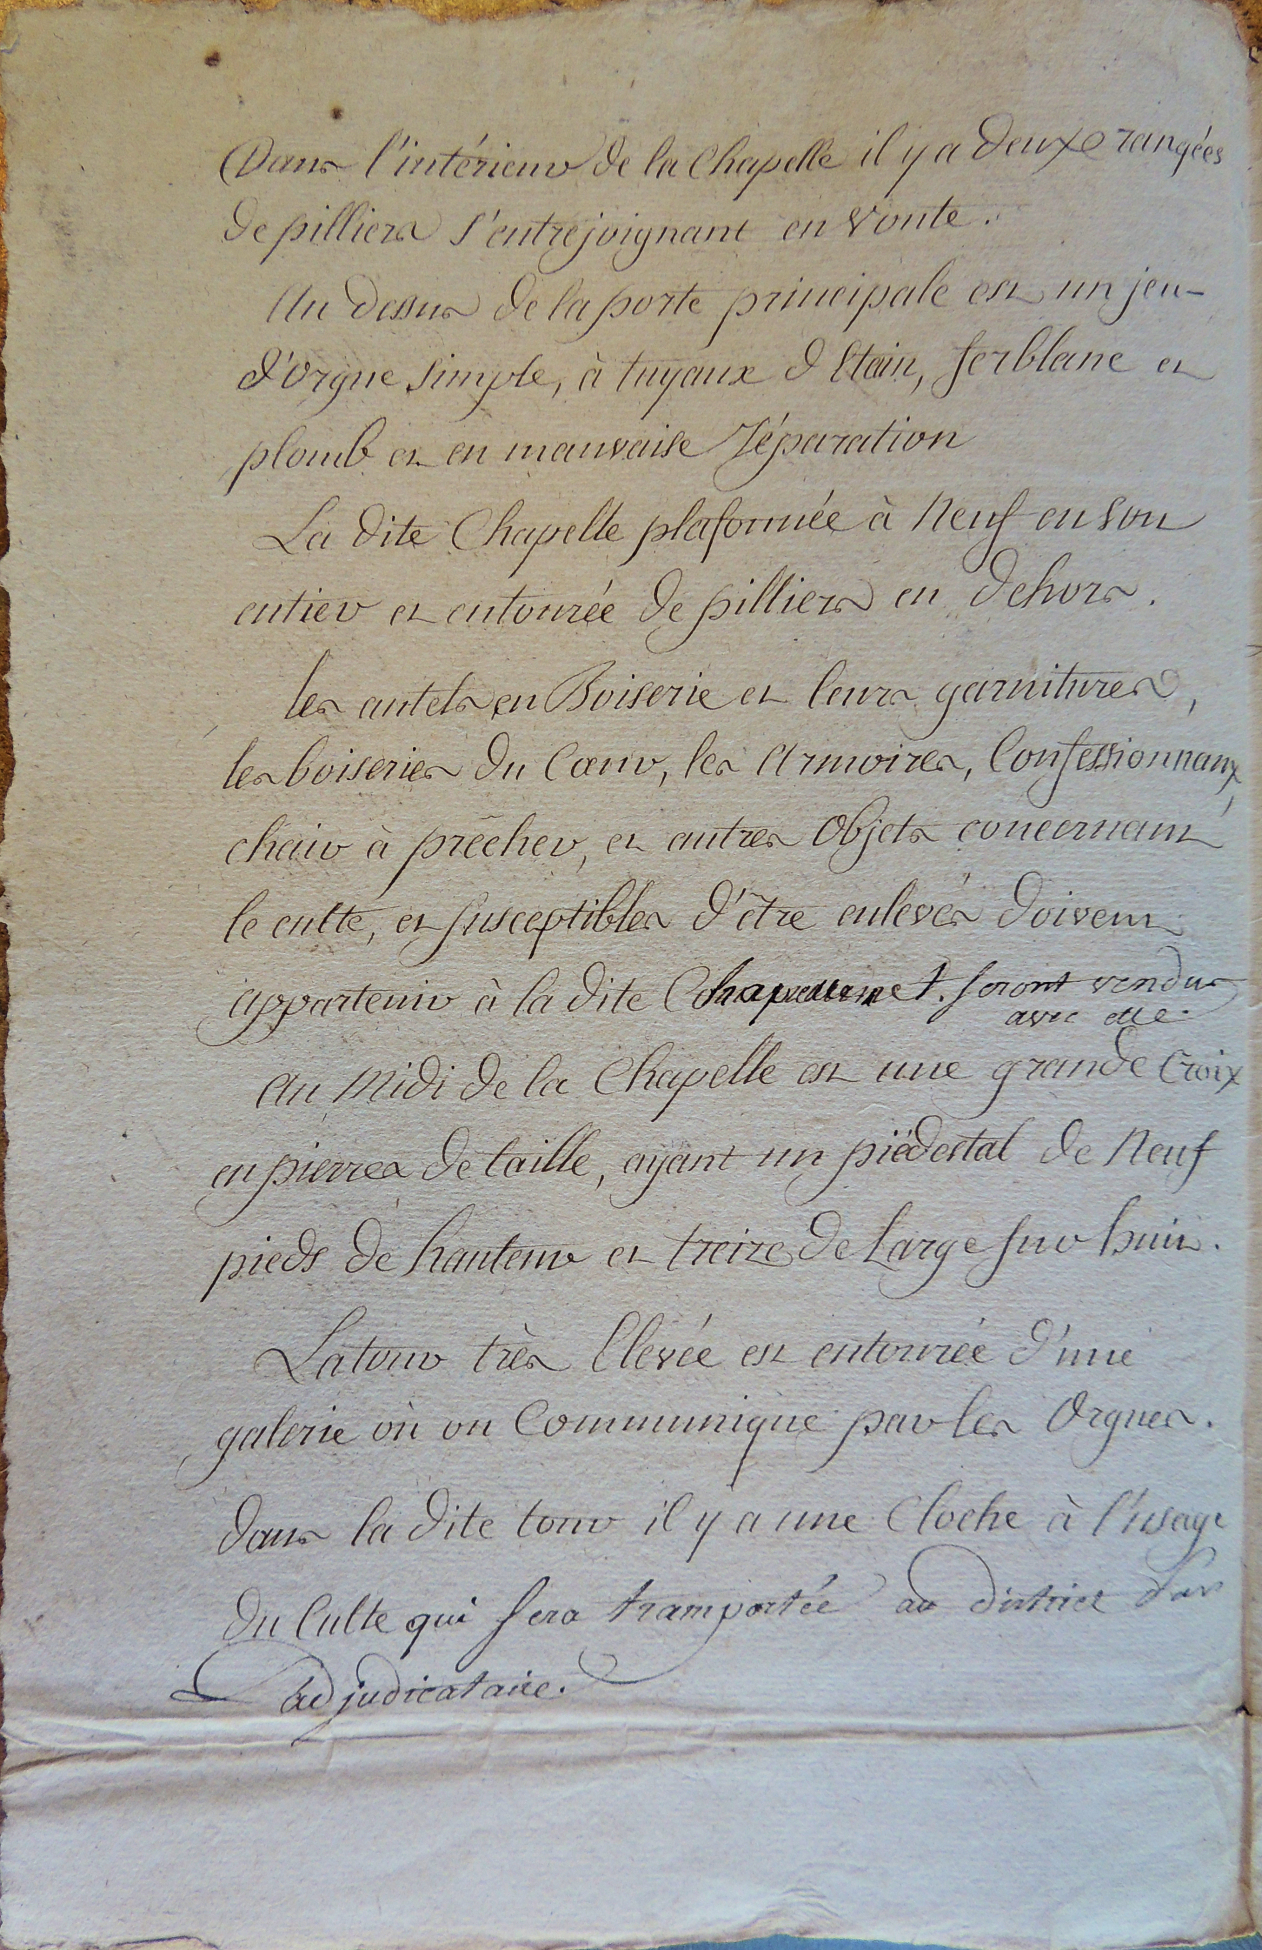 Dans l'intérieur de la Chapelle il y a deux rangées
de pilliers s'entrejoignant en voute.
Au dessus de la porte principale est un jeu
d'orgue simple, à tuyaux d'Etain, ferblanc et
plomb et en mauvaise réparation
La dite Chapelle plafonnée à neuf en son
entier et entourée de pilliers en dehors.
les autels en Boiserie et leurs garnitures,
les boiseries du Cœur, les Armoires, Confessionnaux,
chair à prêcher, et autres objets concernant
le culte, et susceptibles d'être enlevés doivent
appartenir à la dite et seront vendus
avec elle.
Au Midi de la Chapelle est une grande Croix
en pierres de taille, ayant un piédestal de neuf
pieds de hauteur et treize de large sur huit.
La tour très Elevée est entourée d'une
galerie où on Communique par les Orgues.
dans la dite tour il y a une Cloche à l'usage
du Culte qui sera transportée au district
adjudicataire.